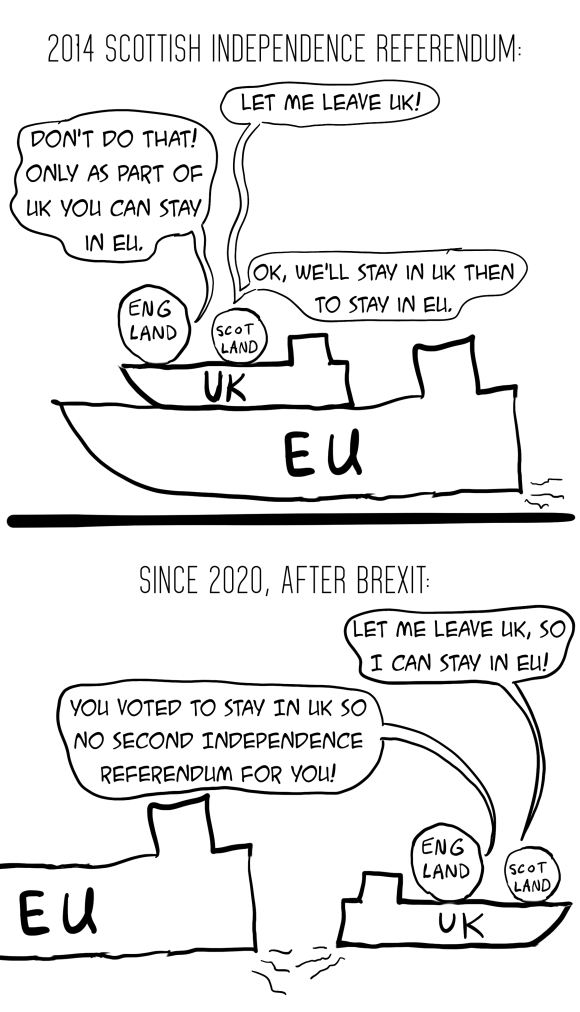 2014 SCOTTISH INDEPENDENCE REFERENDUM:
LET ME LEAVE UK!
DON'T DO THAT!
ONLY AS PART OF
UK YOU CAN STAY
IN EU.
OK, WE'LL STAY IN UK THEN
TO STAY IN EU.
ENG
LAND
SCOT
LAND
UK
EU
SINCE 2020, AFTER BREXIT:
LET ME LEAVE UK, SO
I CAN STAY IN EU!
YOU VOTED TO STAY IN UK SO
NO SECOND INDEPENDENCE
REFERENDUM FOR YOU!
ENG
LAND
SCOT
LAND
EU
UK